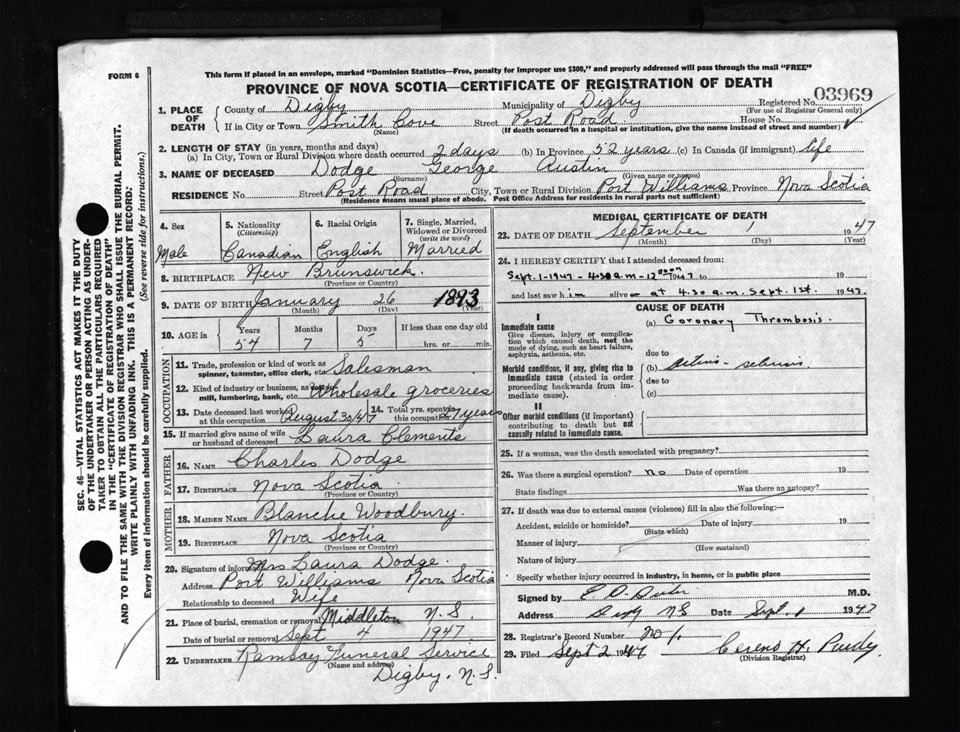 FORM 6
This form if placed in an envelope, marked "Dominion Statistics—Free, penalty for improper use $300," and properly addressed will pass through the mail "FREE"
PROVINCE OF NOVA SCOTIA—CERTIFICATE OF REGISTRATION OF DEATH
SEC. 46—VITAL STATISTICS ACT MAKES IT THE DUTY
OF THE UNDERTAKER OR PERSON ACTING AS UNDER-
TAKER TO OBTAIN ALL THE PARTICULARS REQUIRED
IN THE "CERTIFICATE OF REGISTRATION OF DEATH"
AND TO FILE THE SAME WITH THE DIVISION REGISTRAR WHO SHALL ISSUE THE BURIAL PERMIT.
WRITE PLAINLY WITH UNFADING INK. THIS IS A PERMANENT RECORD:
Every item of information should be carefully supplied. (See reverse side for instructions.)
1. PLACE OF DEATH County of Digby Municipality of Digby Registered No. 03969
(For use of Registrar General only)
If in City or Town Smith Cove Street Post Road House No.
(Name) (If death occurred in a hospital or institution, give the name instead of street and number)
2. LENGTH OF STAY (in years, months and days)
(a) In City, Town or Rural Division where death occurred 2 days (b) In Province 52 years (c) In Canada (if immigrant) life
3. NAME OF DECEASED Dodge George Austin
(Surname) (Given name or names)
RESIDENCE No. Street Post Road City, Town or Rural Division Port Williams Province Nova Scotia
(Residence means usual place of abode. Post Office Address for residents in rural parts not sufficient)
4. Sex Male
5. Nationality (Citizenship) Canadian
6. Racial Origin English
7. Single, Married, Widowed or Divorced (write the word) Married
8. BIRTHPLACE New Brunswick
(Province or Country)
9. DATE OF BIRTH January 26 1893
(Month) (Day) (Year)
10. AGE in Years Months Days If less than one day old
54 7 5 hrs. or min.
OCCUPATION
11. Trade, profession or kind of work as spinner, teamster, office clerk, etc. Salesman
12. Kind of industry or business, as mill, lumbering, bank, etc. Wholesale groceries
13. Date deceased last worked at this occupation August 30/47
14. Total yrs. spent in this occupation 27 years
15. If married give name of wife or husband of deceased Laura Clements
FATHER
16. NAME Charles Dodge
17. BIRTHPLACE Nova Scotia
(Province or Country)
MOTHER
18. MAIDEN NAME Blanche Woodbury.
19. BIRTHPLACE Nova Scotia
(Province or Country)
20. Signature of informant Mrs Laura Dodge.
Address Port Williams Nova Scotia
Relationship to deceased Wife
21. Place of burial, cremation or removal Middleton N.S.
Date of burial or removal Sept 4 1947.
22. UNDERTAKER Ramsay Funeral Service
(Name and address)
Digby. N.S.
MEDICAL CERTIFICATE OF DEATH
23. DATE OF DEATH September 1 1947
(Month) (Day) (Year)
24. I HEREBY CERTIFY that I attended deceased from:
Sept. 1-1947 - 4:30 a.m - 12 noon 1947 to 19
and last saw him alive or at 4.30 a.m. Sept. 1st. 1947.
CAUSE OF DEATH
I
Immediate cause
Give disease, injury or complication which caused death, not the mode of dying, such as heart failure, asphyxia, asthenia, etc.
(a) Coronary Thrombosis.
due to
Morbid conditions, if any, giving rise to immediate cause (stated in order proceeding backwards from immediate cause).
(b)
due to
(c)
II
Other morbid conditions (if important) contributing to death but not causally related to immediate cause.
25. If a woman, was the death associated with pregnancy?
26. Was there a surgical operation? no Date of operation 19
State findings Was there an autopsy?
27. If death was due to external causes (violence) fill in also the following:—
Accident, suicide or homicide? Date of injury 19
(State which)
Manner of injury
(How sustained)
Nature of injury
Specify whether injury occurred in industry, in home, or in public place
Signed by M.D.
Address Digby NS Date Sept. 1 1947
28. Registrar's Record Number No 1.
29. Filed Sept 2 1947 Cereno H. Purdy.
(Division Registrar)